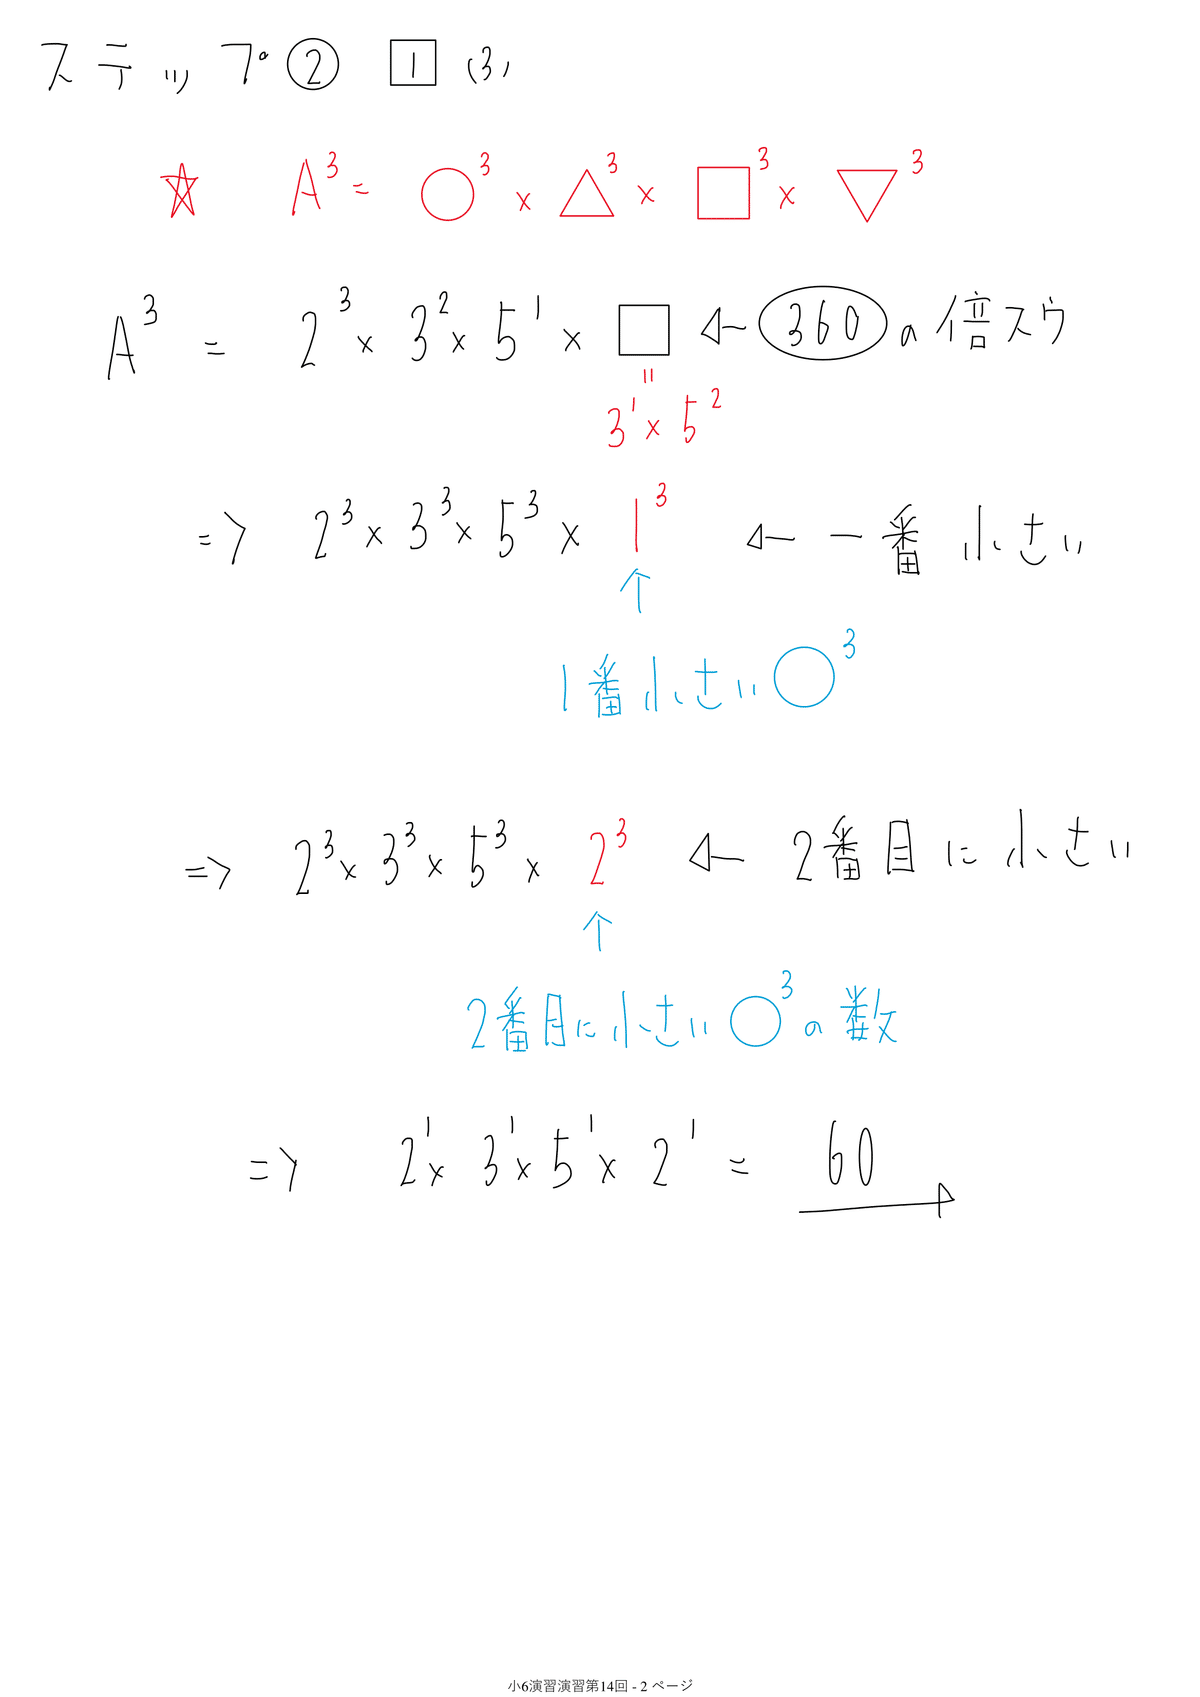 ステップ② 1 (3)
☆ A³ = ○³ × △³ × □³ × ▽³
A³ = 2³ × 3² × 5¹ × □ ← 360の倍スウ
=
3¹ × 5²
=> 2³ × 3³ × 5³ × 1³ ← 一番小さい
↑
1番小さい○³
=> 2³ × 3³ × 5³ × 2³ ← 2番目に小さい
↑
2番目に小さい○³の数
=> 2¹ × 3¹ × 5¹ × 2¹ = 60
小6演習演習第14回 - 2 ページ